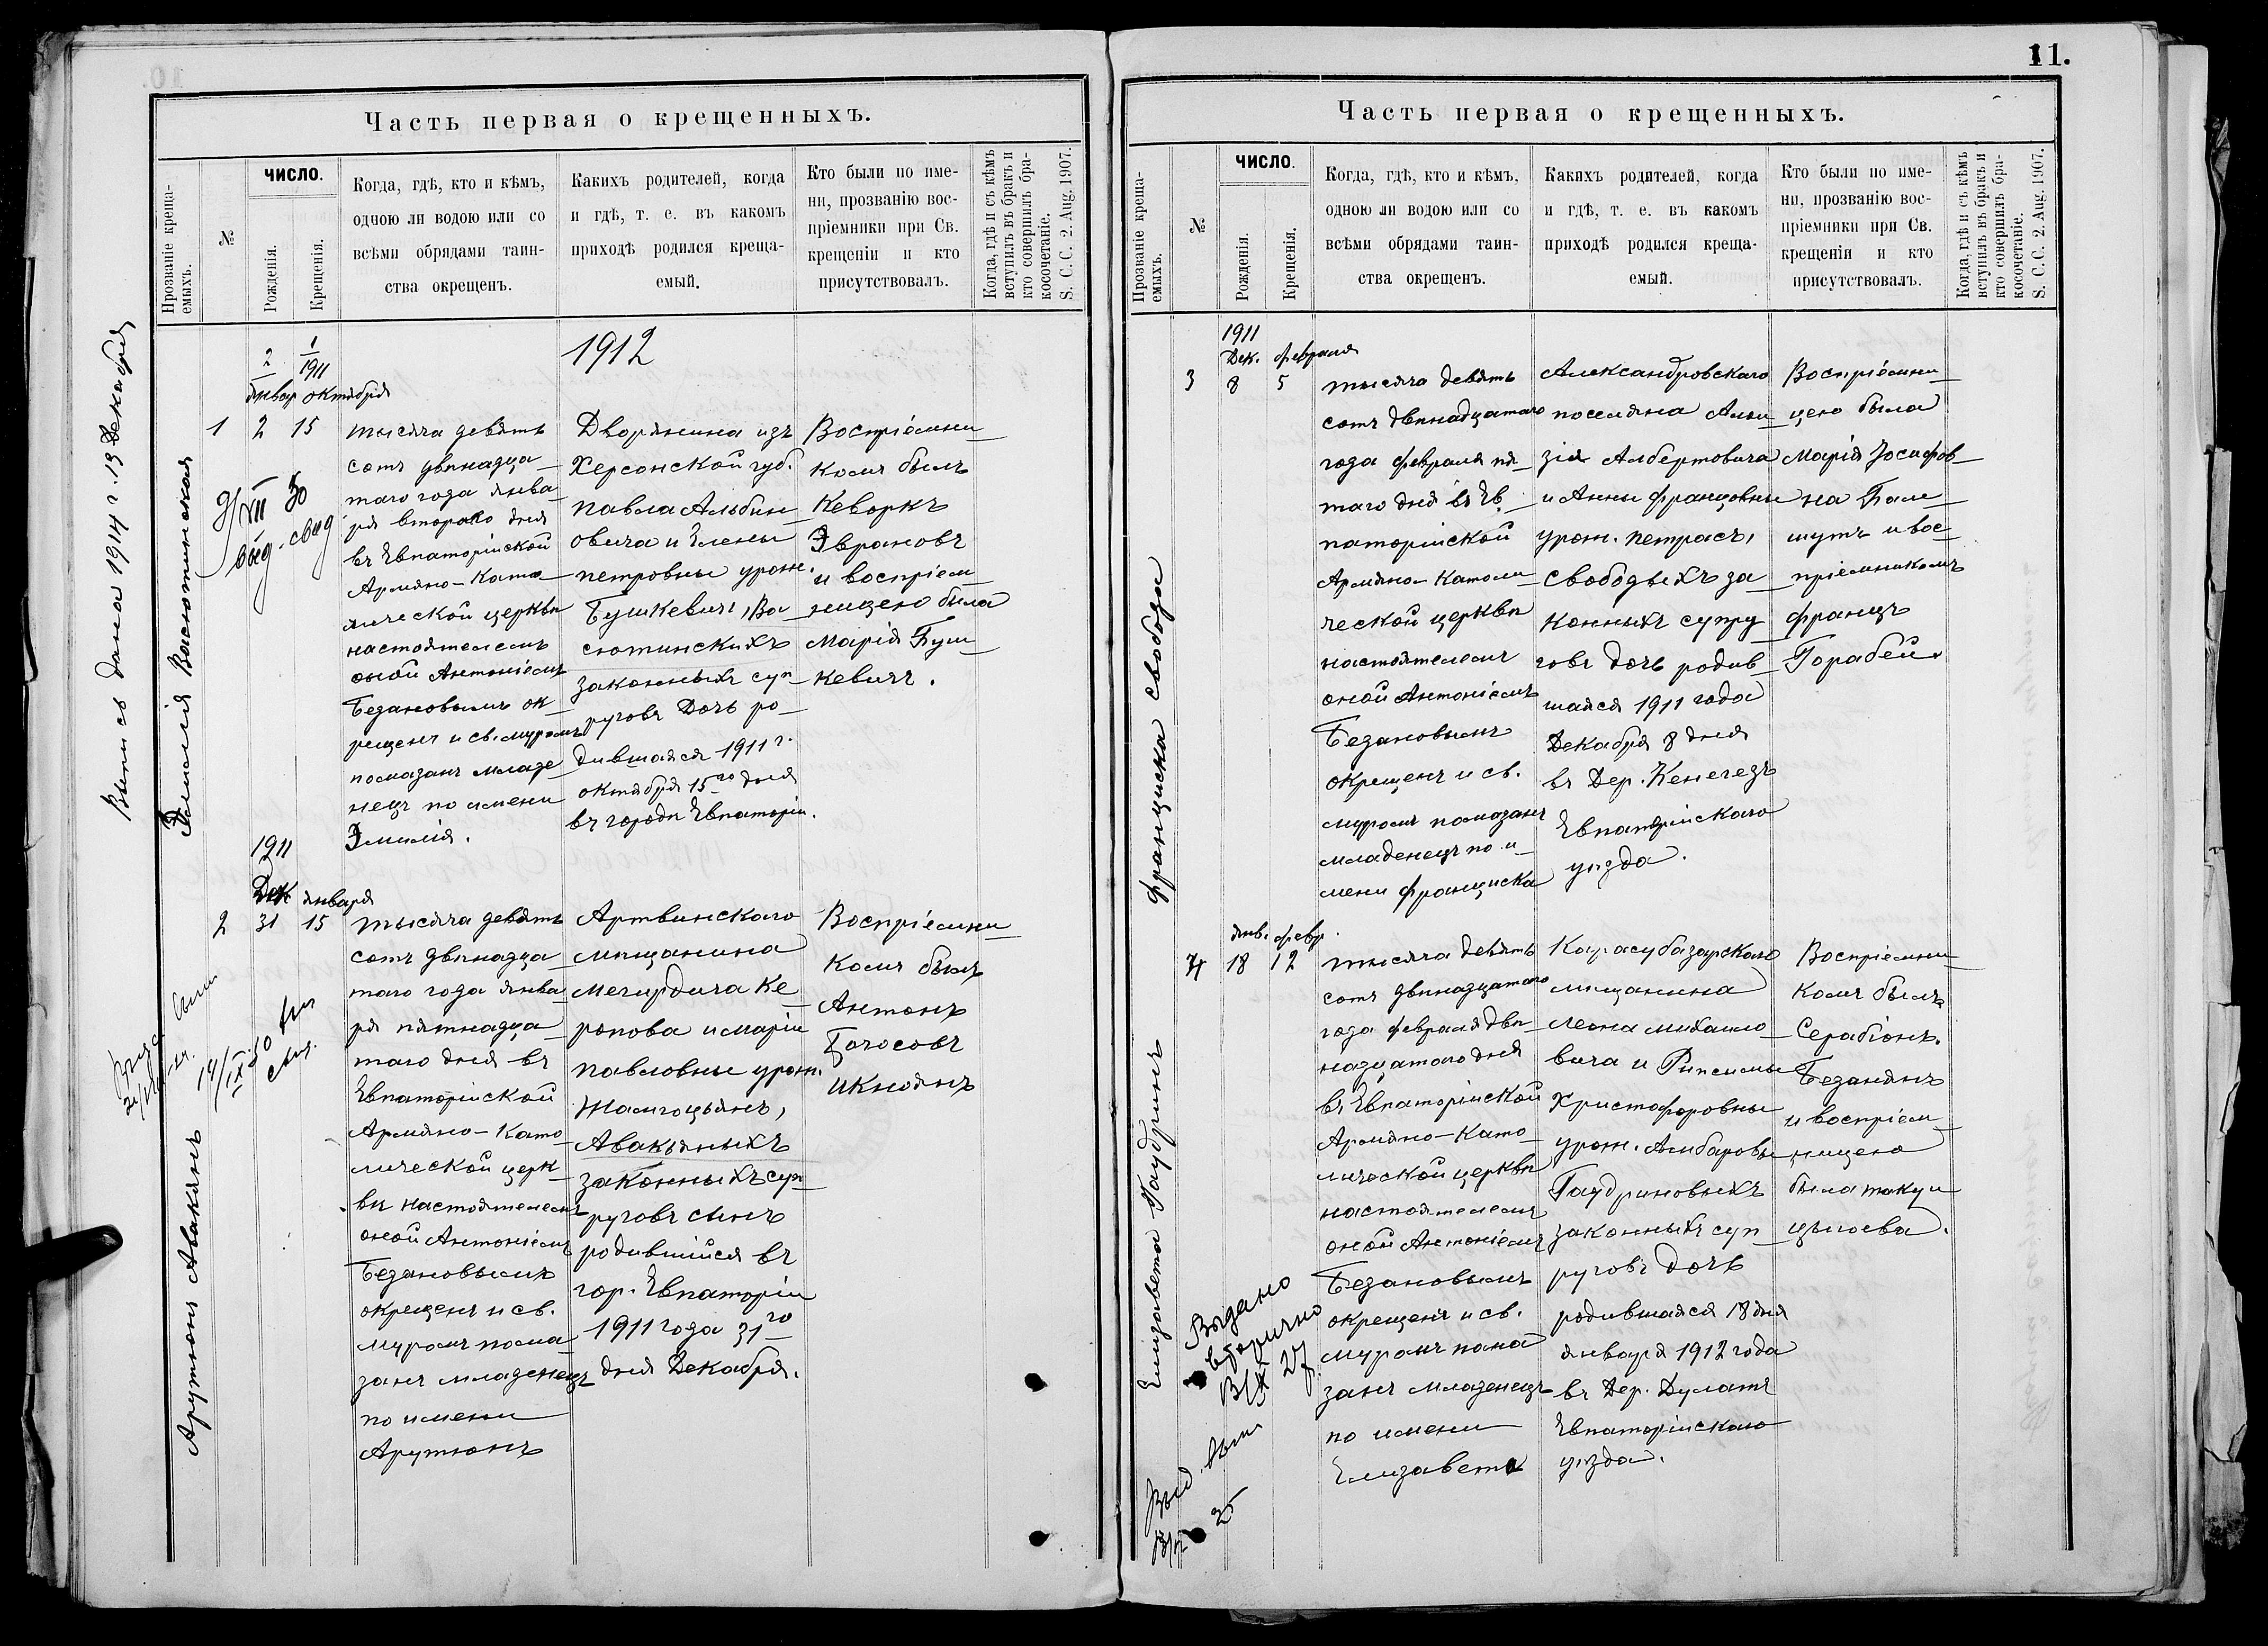 11.
Часть первая о крещенныхъ.
Прозваніе креща-
емыхъ.
№
ЧИСЛО.
Рожденія.
Крещенія.
Когда, гдѣ, кто и кѣмъ,
одною ли водою или со
всѣми обрядами таин-
ства окрещенъ.
Какихъ родителей, когда
и гдѣ, т. е. въ какомъ
приходѣ родился креща-
емый.
Кто были по име-
ни, прозванію вос-
пріемники при Св.
крещеніи и кто
присутствовалъ.
Когда, гдѣ и съ кѣмъ
вступилъ въ бракъ и
кто совершилъ бра-
косочетаніе.
S. C. C. 2. Aug. 1907.
1912
Выпись дана 1914 г. 13 Декабря
Эмилія Васютинская
2 1
1911
январ октября
1 2 15
9/XII 30
выд. свид
тысяча девять
сотъ двѣнадца
таго года янва
ря второго дня
въ Евпаторійской
Армяно-Като
лической церкви
настоятелемъ
оной Антоніемъ
Безановымъ ок
рещенъ и св. муромъ
помазанъ младе
нецъ по имени
Эмилія.
Дворянина изъ
Херсонской губ.
Павла Альбин
овича и Елены
Петровны урож.
Бушкевичъ, Ва
сютинскихъ
законныхъ суп
руговъ Дочь ро
дившаяся 1911 г.
октября 15го дня
въ городѣ Евпаторіи.
Воспріемни
комъ былъ
Кеворкъ
Эврановъ
и воспріем
ницею была
Марія Буш
кевичъ.
Арутюнъ Авакянъ
1911
Дек января
2 31 15
14/IX 30
свид.
тысяча девять
сотъ двѣнадца
таго года янва
ря пятнадца
таго дня въ
Евпаторійской
Армяно-Като
лической церк
ви настоятелемъ
оной Антоніемъ
Безановымъ
окрещенъ и св.
муромъ пома
занъ младенецъ
по имени
Арутюнъ
Артвинского
мѣщанина
Мечирдича Ке
ропова и Маріи
Павловны урож.
Жамгоцьянъ,
Авакьяныхъ
законныхъ суп
руговъ сынъ
родившійся въ
гор. Евпаторіи
1911 года 31го
дня Декабря.
Воспріемни
комъ былъ
Антонъ
Богосовъ
Икноянъ
Часть первая о крещенныхъ.
Прозваніе креща-
емыхъ.
№
ЧИСЛО.
Рожденія.
Крещенія.
Когда, гдѣ, кто и кѣмъ,
одною ли водою или со
всѣми обрядами таин-
ства окрещенъ.
Какихъ родителей, когда
и гдѣ, т. е. въ какомъ
приходѣ родился креща-
емый.
Кто были по име-
ни, прозванію вос-
пріемники при Св.
крещеніи и кто
присутствовалъ.
Когда, гдѣ и съ кѣмъ
вступилъ въ бракъ и
кто совершилъ бра-
косочетаніе.
S. C. C. 2. Aug. 1907.
Франциска Свободы
1911
Дек. февраля
3 8 5
тысяча девять
сотъ двѣнадцатаго
года февраля пя
таго дня въ Ев
паторійской
Армяно-Католи
ческой церкви
настоятелемъ
оной Антоніемъ
Безановымъ
окрещенъ и св.
муромъ помазанъ
младенецъ по и
мени Франциска
Александровскаго
поселяна Алои
зія Албертовича
и Анны Францовны
урож. Петрасъ,
Свободыхъ за
конныхъ супру
говъ дочь родив
шаяся 1911 года
Декабря 8 дня
въ Дер. Кенегезъ
Евпаторійского
уѣзда.
Воспріемни
цею была
Марія Іосифов
на Балe
шутъ и вос
пріемникомъ
Францъ
Горабей.
Елизавета Гаудринъ
янв. февр.
4 18 12
Выдано
вторично
27
25
тысяча девять
сотъ двѣнадцатаго
года февраля двѣ
надцатаго дня
въ Евпаторійской
Армяно-Като
лической церкви
настоятелемъ
оной Антоніемъ
Безановымъ
окрещенъ и св.
муромъ пома
занъ младенецъ
по имени
Елизавета
Карасубазарскаго
мѣщанина
Леона Михаило
вича и Рипсимы
Христофоровны
урож. Амбаровы
Гаудриновыхъ
законныхъ суп
руговъ дочь
родившаяся 18 дня
января 1912 года
въ Дер. Дулатъ
Евпаторійскаго
уѣзда.
Воспріемни
комъ былъ
Серабіонъ.
Безанянъ
и воспріем
ницею
была